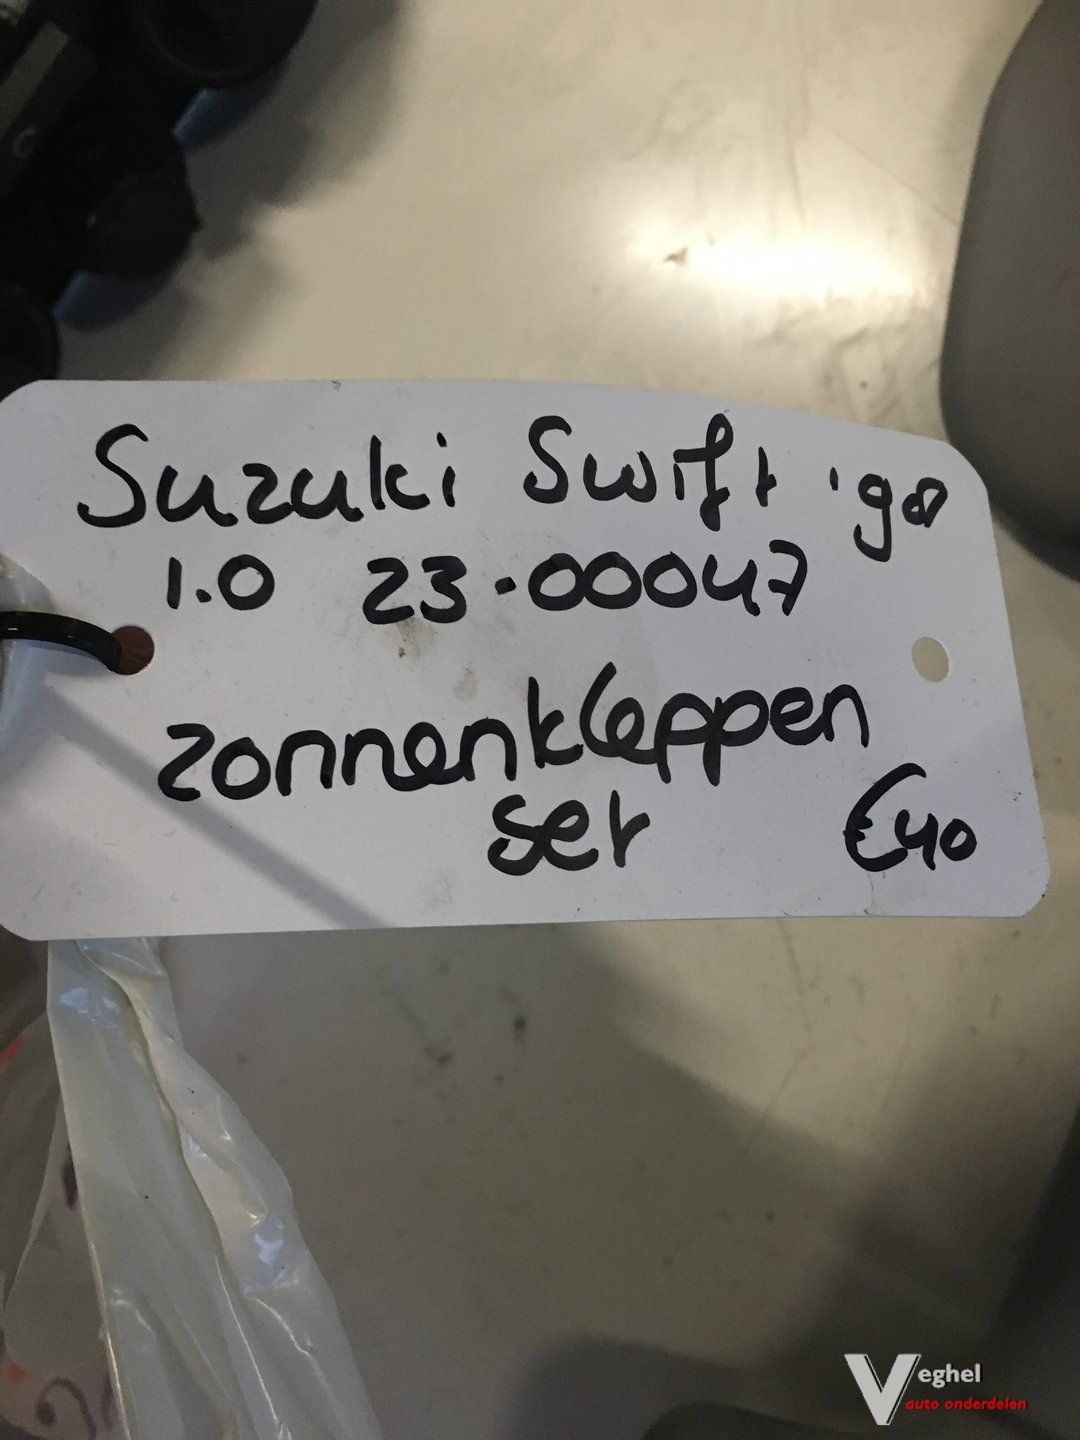 Suzuki Swift '98
1.0 23-00047
zonnenkleppen
set €40
Veghel
auto onderdelen